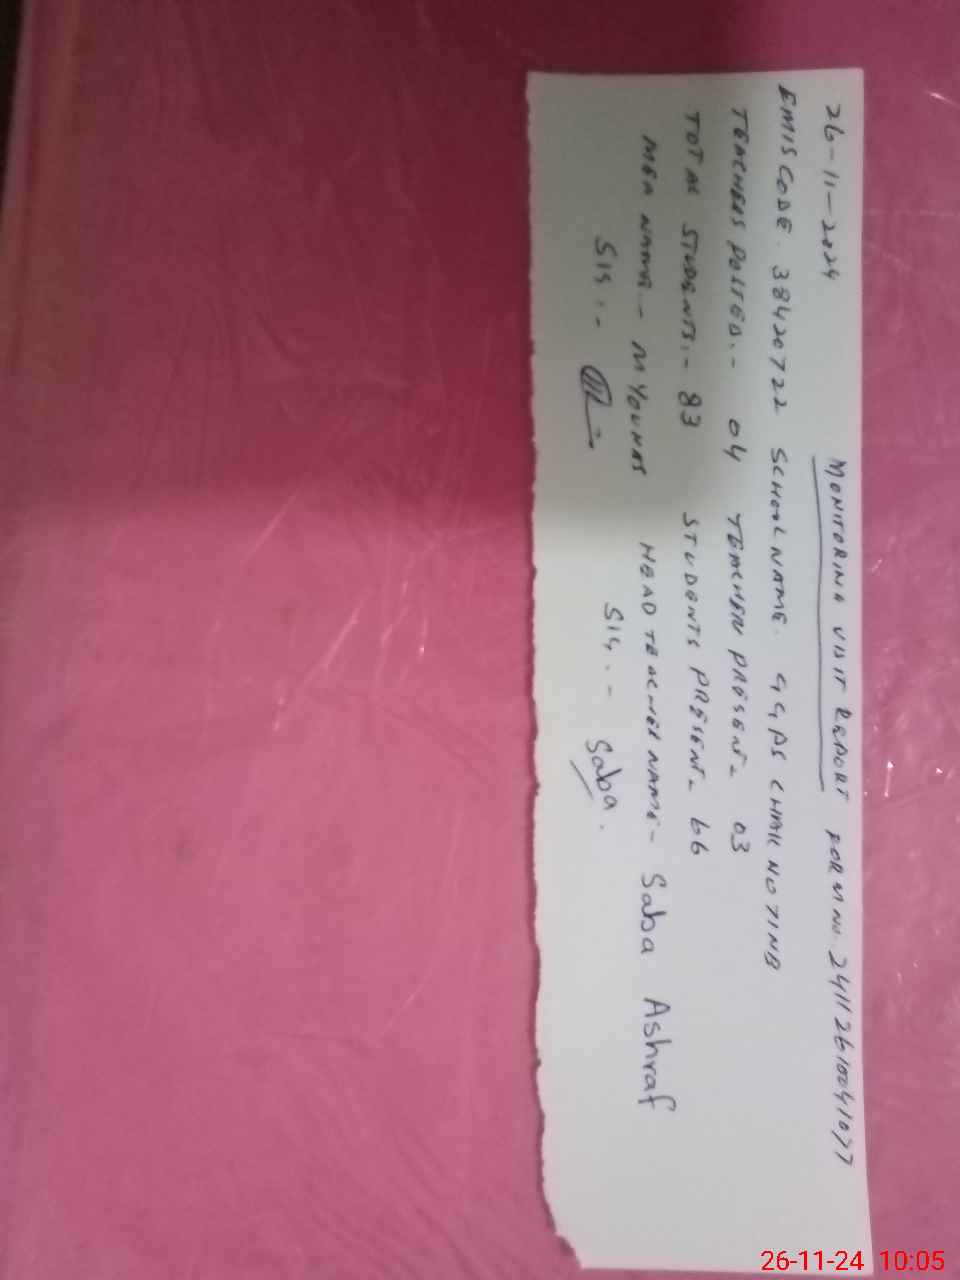 26-11-2024 MONITORING VISIT REPORT FORM NO. 24112610041077
EMIS CODE. 38420722 SCHOOL NAME. GGPS CHAK NO 7 1NB
TEACHERS POSTED.- 04 TEACHER PRESENT- 03
TOTAL STUDENTS.- 83 STUDENTS PRESENT- 66
MEA NAME- M YOUNAS HEAD TEACHER NAME- Saba Ashraf
SIG.- SIG.- Saba.
26-11-24 10:05